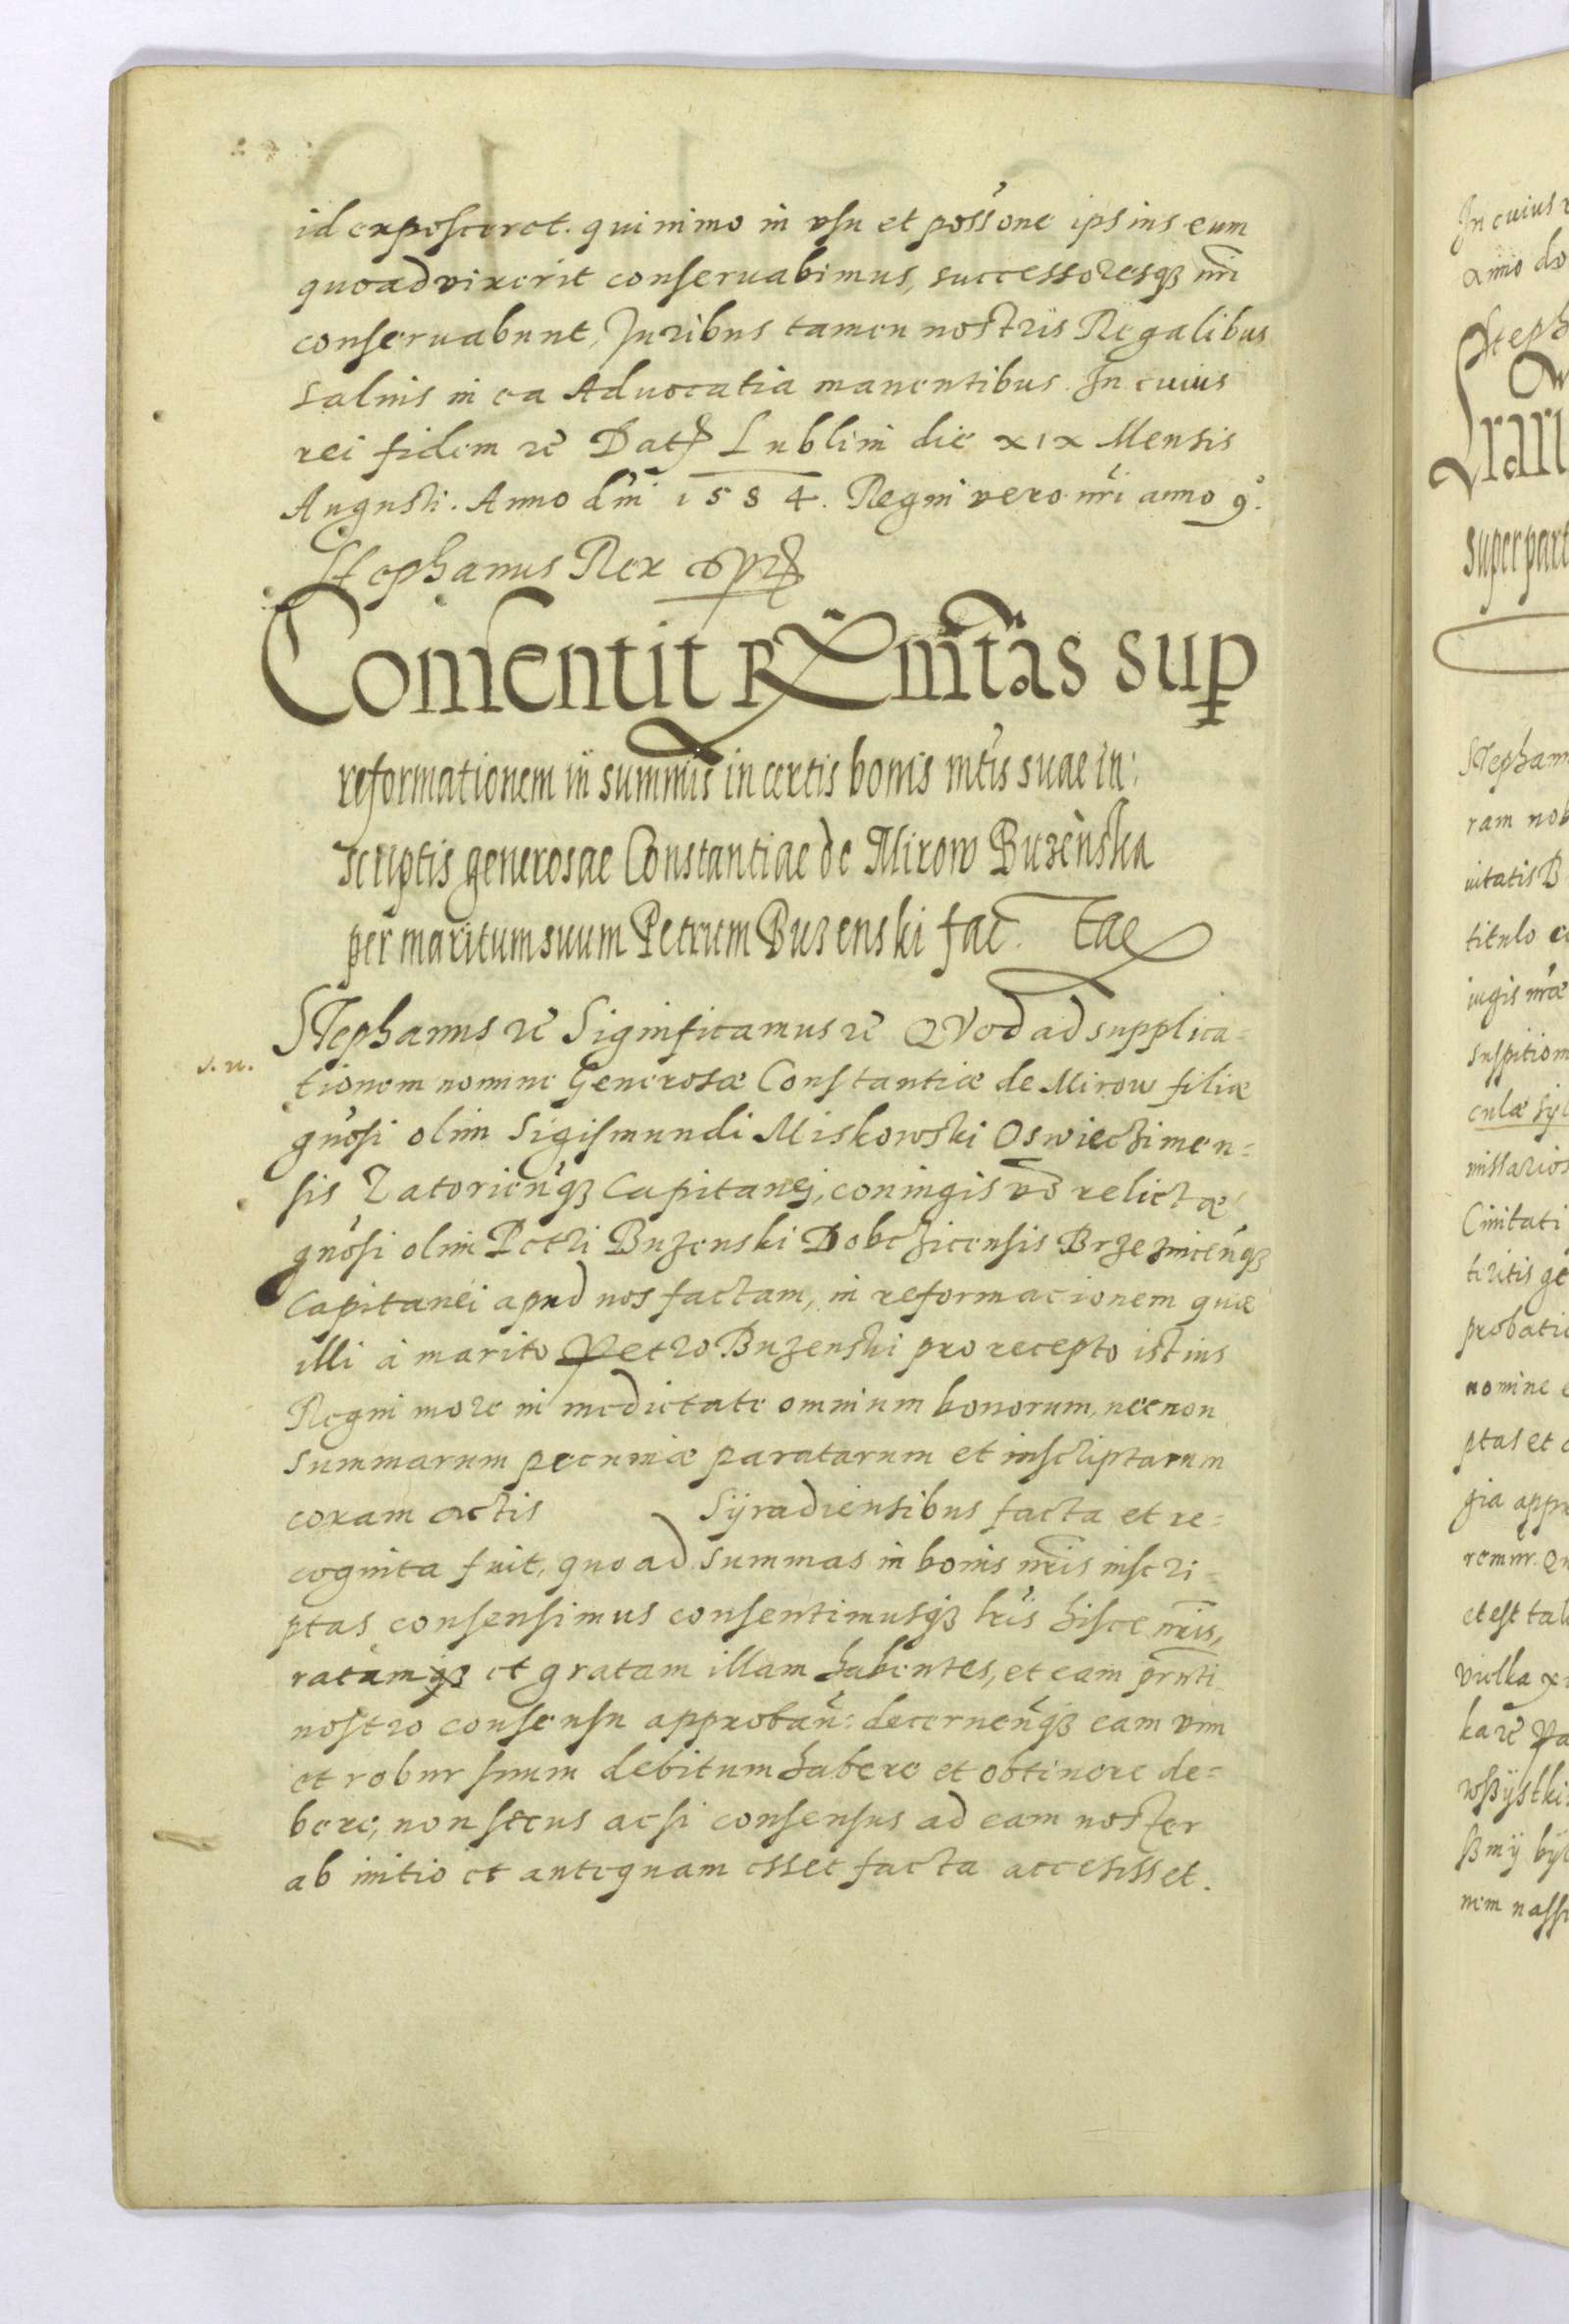 id exposceret. quinimo in vsu et possone ipsius eum
quoad vixerit conseruabimus, successoresqz nri
conseruabunt, Juribus tamen nostris Regalibus
saluis in ea Aduocatia manentibus. In cuius
rei fidem rc Dat Lublini die xıx Mensis
Augusti. Anno dni 1584. Regni vero nri anno 9º.
Stephanus Rex sst
Consentit R Mtas sup
reformationem in summis in certis bonis mtis suae in:
scriptis generosae Constantiae de Mirow Buzenska
per maritum suum Petrum Buzenski fac. tae
STephanus rc Significamus rc QVod ad supplica=
s. n.
tionem nomine Generosæ Constantiæ de Mirow filiæ
gnosi olim Sigismundi Miskowski Oswieczimen=
sis Zatorienqz Capitanej, coniugis vo relictæ
gnosi olim Petri Buzenski Dobczicensis Brzeznicenqz
Capitanei apud nos factam, in reformacionem quæ
illi à marito Petro Buzenski pro recepto istius
Regni more in medietate omnium bonorum, necnon
summarum pecuniæ paratarum et inscriptarum
coram actis Syradiensibus facta et re=
cognita fuit, quoad summas in bonis nris inscri=
ptas consensimus consentimusqz lris hisce nris,
ratamqz et gratam illam habentes, et eam prnti
nostro consensu approban: decernenqz eam vim
et robur suum debitum habere et obtinere de=
bere, non secus acsi consensus ad eam noster
ab initio et antequam esset facta accesisset.
In cuius
Steph
super part
Stephan
ram nob
uitatis B
titulo
iugis nræ
suspition
culæ
missarios
Ciuitati
probatio
nomine
ptas et
gia appr
remur. Qu
et est tal